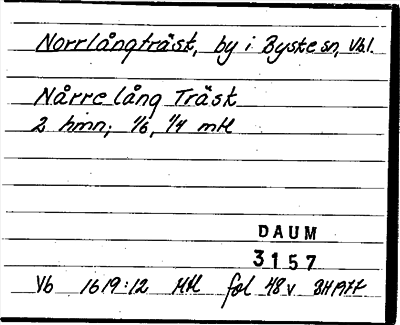 Norrlångträsk, by i Byske sn, Vbl.
Nårre lång Träsk
2 hmn; 1/6, 1/4 mtl
DAUM
3157
Vb 1619:12 Mtl fol 48v